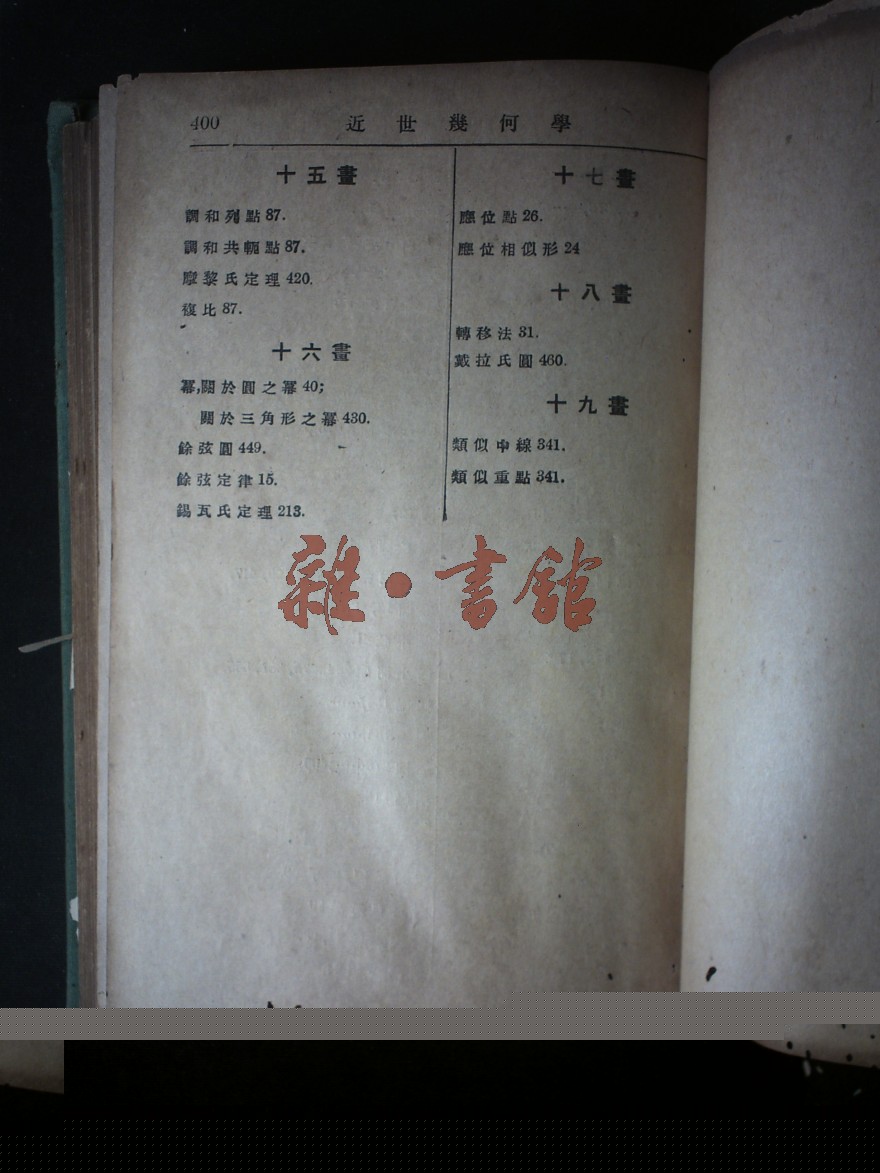 400 近世幾何學
十五畫
調和列點 87.
調和共軛點 87.
摩黎氏定理 420.
複比 87.
十六畫
冪,關於圓之冪 40;
關於三角形之冪 430.
餘弦圓 449.
餘弦定律 15.
錫瓦氏定理 213.
十七畫
應位點 26.
應位相似形 24
十八畫
轉移法 31.
戴拉氏圓 460.
十九畫
類似中線 341.
類似重點 341.
雜·書館